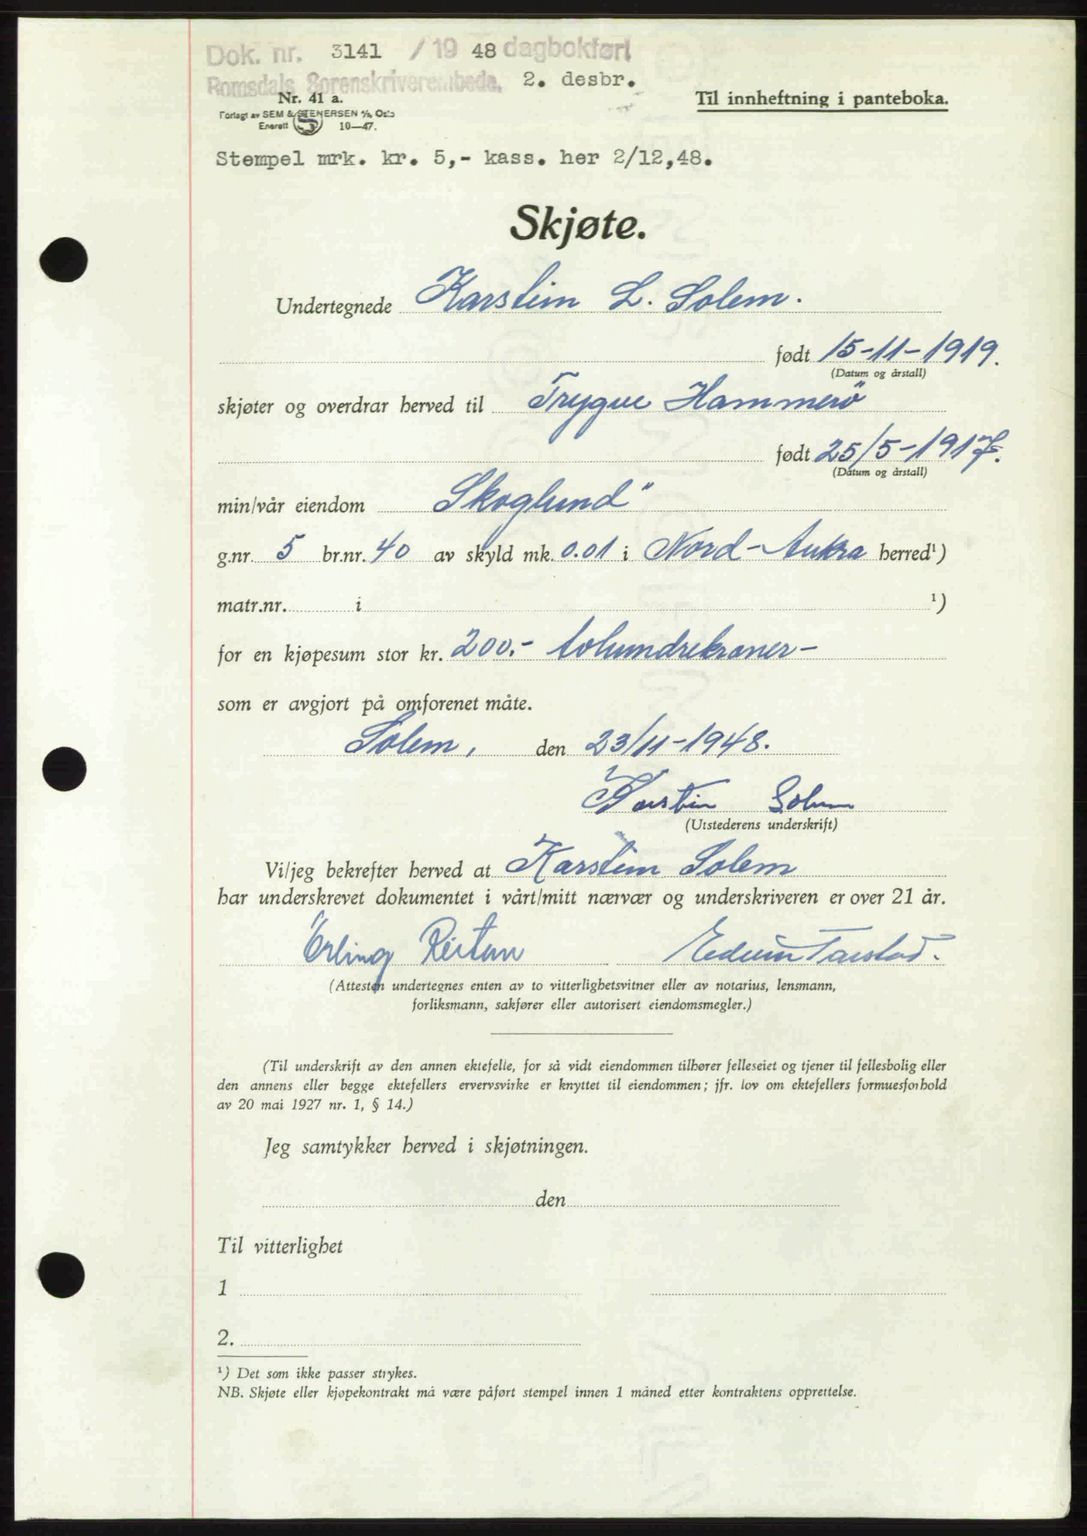 Dok. nr. 3141 / 19 48 dagbokført
Romsdals Sorenskriverembede, 2. desbr.
Nr. 41 a.
Til innheftning i panteboka.
Forlagt av SEM & STENERSEN A/S, Oslo
Enerett 10—47.
Stempel mrk. kr. 5,- kass. her 2/12,48.
Skjøte.
Undertegnede Karstein L. Solem.
født 15-11-1919.
(Datum og årstall)
skjøter og overdrar herved til Trygve Hammerö
født 25/5-1917.
(Datum og årstall)
min/vår eiendom Skoglund"
g.nr. 5 br.nr. 40 av skyld mk. 0.01 i Nord-Aukra herred¹)
matr.nr. i ¹)
for en kjøpesum stor kr. 200.- tohundrekroner-
som er avgjort på omforenet måte.
Solem, den 23/11-1948.
Karstein Solem
(Utstederens underskrift)
Vi/jeg bekrefter herved at Karstein Solem
har underskrevet dokumentet i vårt/mitt nærvær og underskriveren er over 21 år.
Erling Reitan Edvin Tarstad.
(Attesten undertegnes enten av to vitterlighetsvitner eller av notarius, lensmann,
forliksmann, sakfører eller autorisert eiendomsmegler.)
(Til underskrift av den annen ektefelle, for så vidt eiendommen tilhører felleseiet og tjener til fellesbolig eller
den annens eller begge ektefellers ervervsvirke er knyttet til eiendommen; jfr. lov om ektefellers formuesforhold
av 20 mai 1927 nr. 1, § 14.)
Jeg samtykker herved i skjøtningen.
den
Til vitterlighet
1
2.
¹) Det som ikke passer strykes.
NB. Skjøte eller kjøpekontrakt må være påført stempel innen 1 måned etter kontraktens opprettelse.